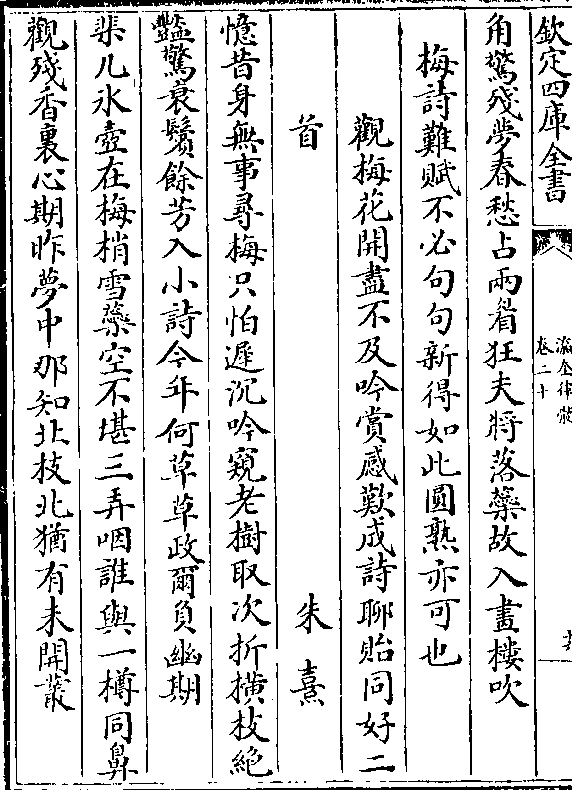 欽定四庫全書
瀛奎律髓
卷二十
角驚殘夢春愁占兩眉狂夫將落蘂故入畫樓吹
梅詩難賦不必句句新得如此圓熟亦可也
觀梅花開盡不及吟賞感歎成詩聊貽同好二
首　朱熹
憶昔身無事尋梅只怕遲沉吟窺老樹取次折橫枝絶
豔驚衰鬢餘芳入小詩今年何草草政爾負幽期
棐几氷壺在梅梢雪蘂空不堪三弄咽誰與一樽同鼻
觀殘香裏心期昨夢中那知北枝北猶有未開叢